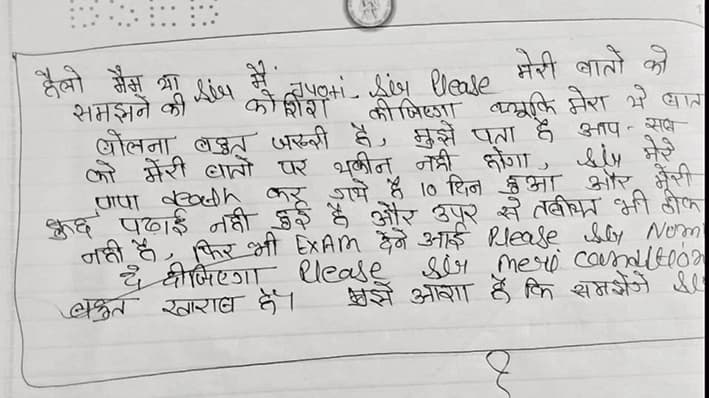 हैलो मैम या Sir मैं Jyoti Sir Please मेरी बातो को
समझने की कोशिश कीजिएगा क्युकि मेरा ये बात
बोलना बहुत जरूरी है, मुझे पता है आप-सब
को मेरी बातो पर यकीन नही होगा, Sir मेरे
पापा death कर गये है 10 दिन हुआ और मेरी
कुछ पढ़ाई नही हुई है और उपर से तबीयत भी ठीक
नही है, फिर भी EXAM देने आई Please Sir Num
दे दीजिएगा Please Sir meri candition
बहुत खराब है। मुझे आशा है कि समझेंगे Sir